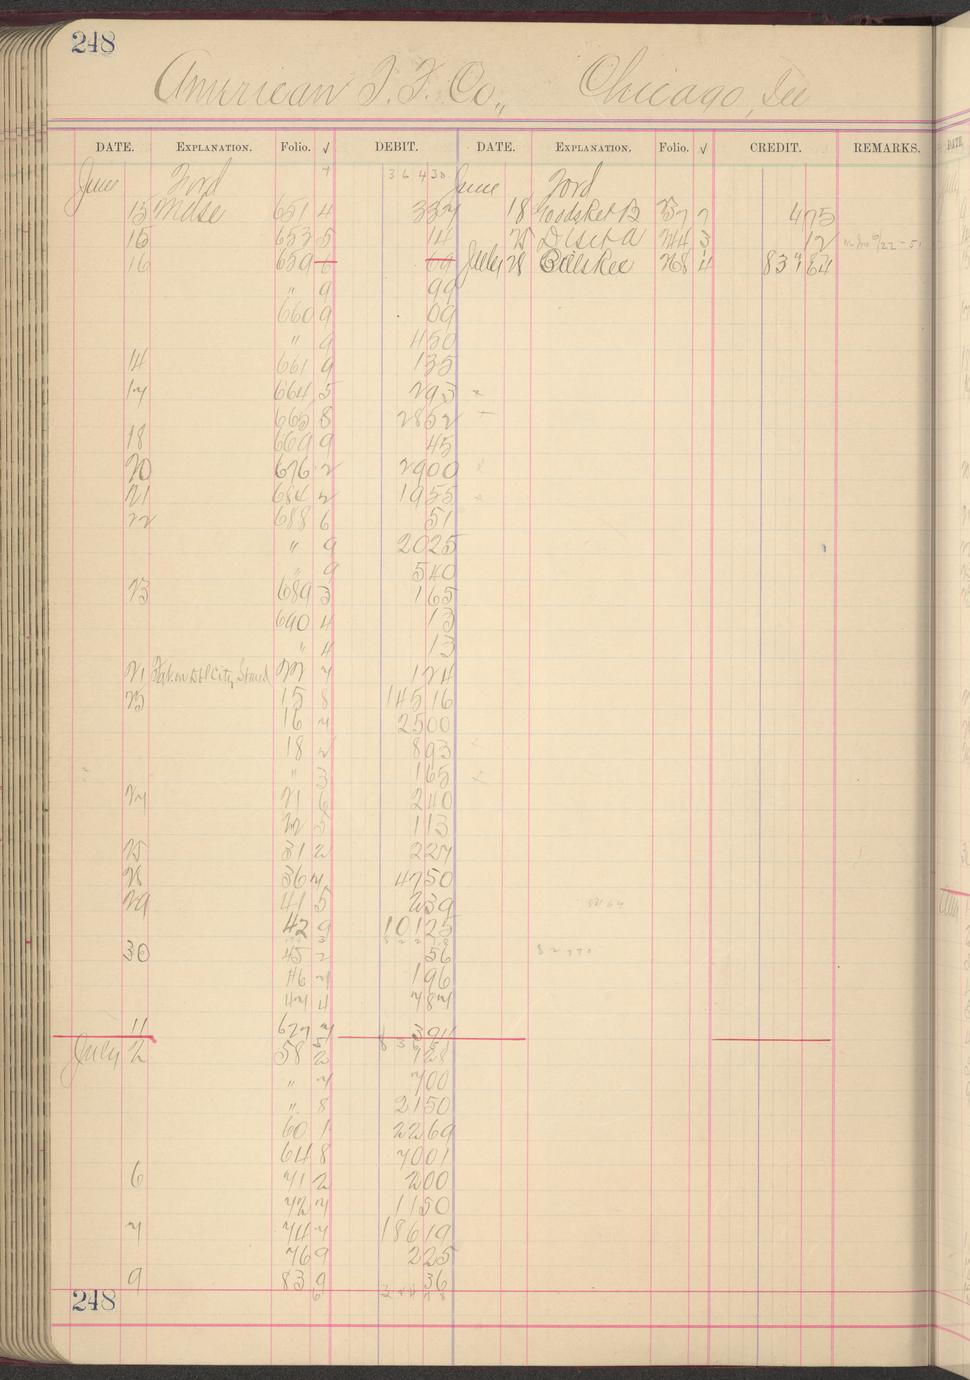 248
American T. F. Co., Chicago, Ill
DATE. EXPLANATION. Folio. √ DEBIT. DATE. EXPLANATION. Folio. √ CREDIT. REMARKS.
June Ford 364 30 June Ford
15 Mdse 651 4 3 37 18 Goods Ret B 237 7 4 75
15 653 5 14 25 244 3 12
16 659 6 69 July 28 Bills Rec 268 4 837 64
" 9 99
660 9 09
" 9 4 50
14 661 9 1 35
17 664 5 2 93
665 8 28 52
18 669 9 45
20 676 2 29 00
21 684 2 19 55
22 688 6 51
" 9 20 25
" 9 5 40
23 689 3 1 65
690 4 13
" 4 13
21 7 1 24
23 15 8 145 16
16 7 25 00
18 2 8 93
" 3 1 65
24 21 6 2 40
22 5 1 13
25 31 2 2 27
28 36 7 47 50
29 41 5 2 39
42 9 101 25
30 45 2 56
46 7 1 96
47 4 7 87
11 627 7 3 91
July 2 58 2 9 28
" 7 7 00
" 8 21 50
60 1 22 69
64 8 70 01
6 71 2 2 00
72 7 11 50
7 74 7 186 19
76 9 2 25
9 83 9 36
248